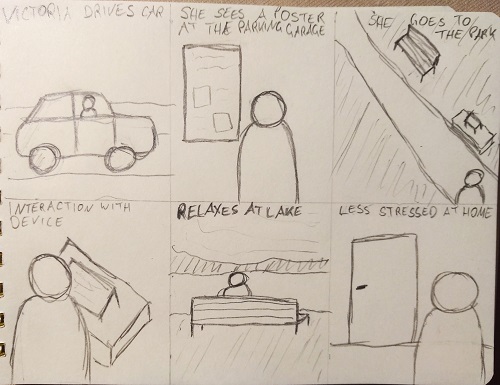 VICTORIA DRIVES CAR
SHE SEES A POSTER
AT THE PARKING GARAGE
SHE GOES TO
THE PARK
INTERACTION WITH
DEVICE
RELAXES AT LAKE
LESS STRESSED AT HOME